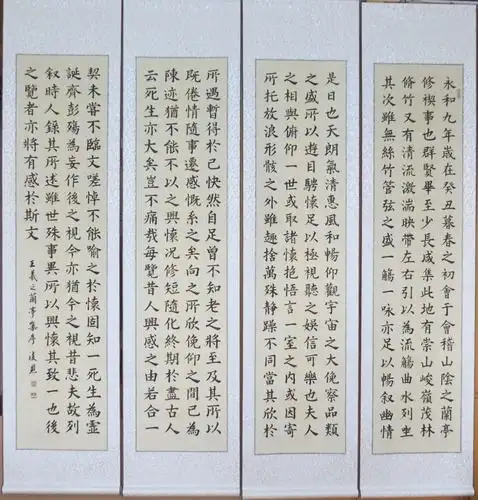 永和九年歲在癸丑暮春之初會于會稽山陰之蘭亭
修禊事也群賢畢至少長咸集此地有崇山峻嶺茂林
脩竹又有清流激湍映帶左右引以為流觴曲水列坐
其次雖無絲竹管弦之盛一觴一詠亦足以暢叙幽情
是日也天朗氣清惠風和暢仰觀宇宙之大俛察品類
之盛所以遊目騁懷足以極視聽之娛信可樂也夫人
之相與俯仰一世或取諸懷抱悟言一室之内或因寄
所托放浪形骸之外雖趣捨萬殊靜躁不同當其欣於
所遇暫得於己快然自足曾不知老之將至及其所以
既倦情隨事遷感慨系之矣向之所欣俛仰之間已為
陳迹猶不能不以之興懷况修短隨化終期於盡古人
云死生亦大矣豈不痛哉每覽昔人興感之由若合一
契未嘗不臨文嗟悼不能喻之於懷固知一死生為虛
誕齊彭殤為妄作後之視今亦猶今之視昔悲夫故列
叙時人錄其所述雖世殊事異所以興懷其致一也後
之覽者亦將有感於斯文
王羲之蘭亭集序